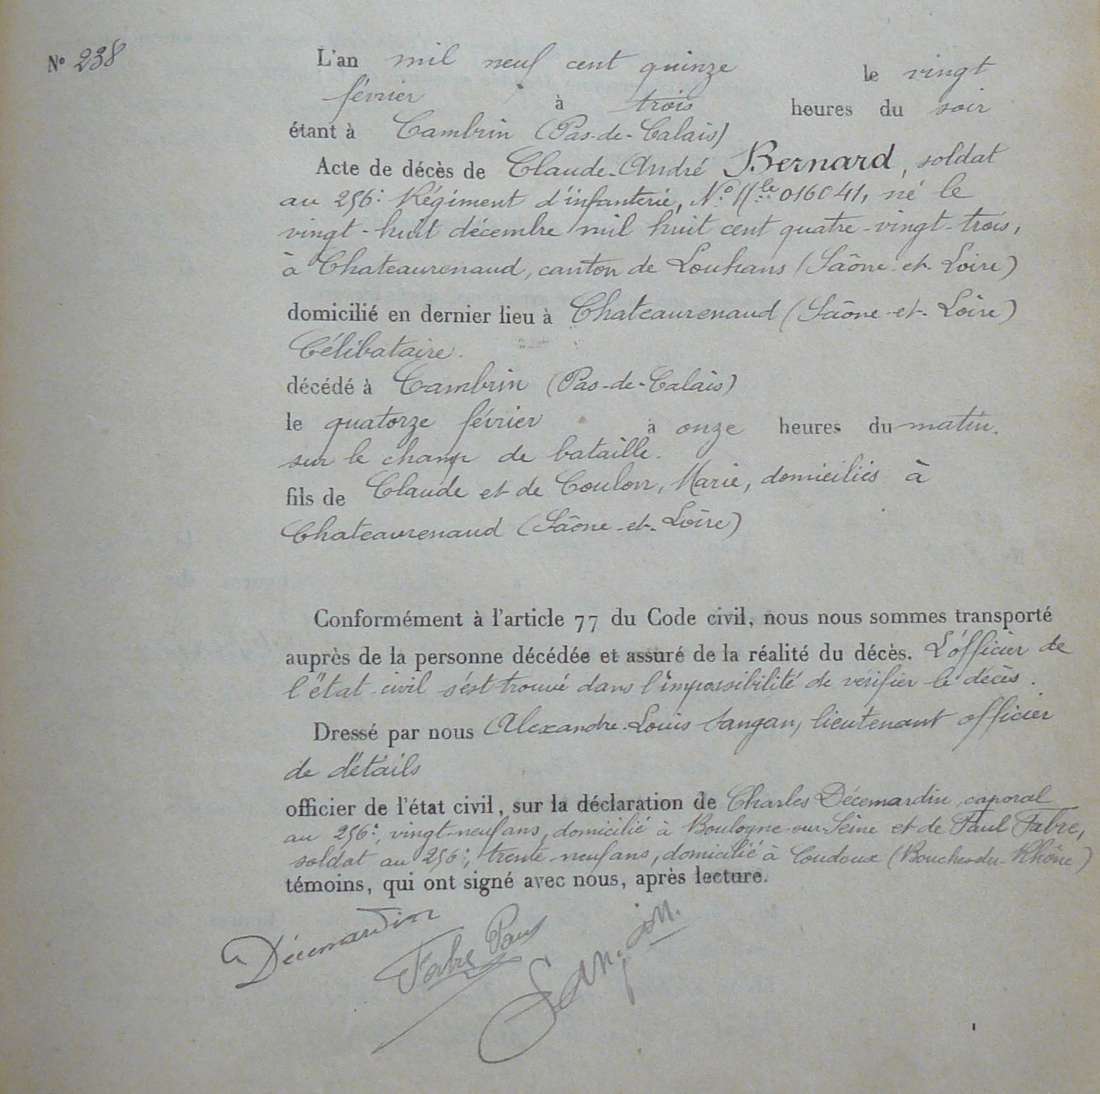 N° 238
L'an mil neuf cent quinze le vingt
février à trois heures du soir
étant à Cambrin (Pas-de-Calais)
Acte de décès de Claude-André Bernard, soldat
au 256e Régiment d'infanterie, N° Mle 016041, né le
vingt-huit décembre mil huit cent quatre-vingt-trois,
à Chateaurenaud, canton de Louhans (Saône-et-Loire)
domicilié en dernier lieu à Chateaurenaud (Saône-et-Loire)
Célibataire.
décédé à Cambrin (Pas-de-Calais)
le quatorze février à onze heures du matin.
sur le champ de bataille.
fils de Claude et de Coulon, Marie, domiciliés à
Chateaurenaud (Saône-et-Loire)
Conformément à l'article 77 du Code civil, nous nous sommes transporté
auprès de la personne décédée et assuré de la réalité du décès. L'officier de
l'état-civil s'est trouvé dans l'impossibilité de vérifier le décès.
Dressé par nous Alexandre-Louis Sangan, lieutenant officier
de détails
officier de l'état civil, sur la déclaration de Charles Décemardin, caporal
au 256e, vingt-neuf ans, domicilié à Boulogne-sur-Seine et de Paul Fabre,
soldat au 256e, trente-neuf ans, domicilié à Coudoux (Bouches-du-Rhône)
témoins, qui ont signé avec nous, après lecture.
Décemardin
Fabre Paul